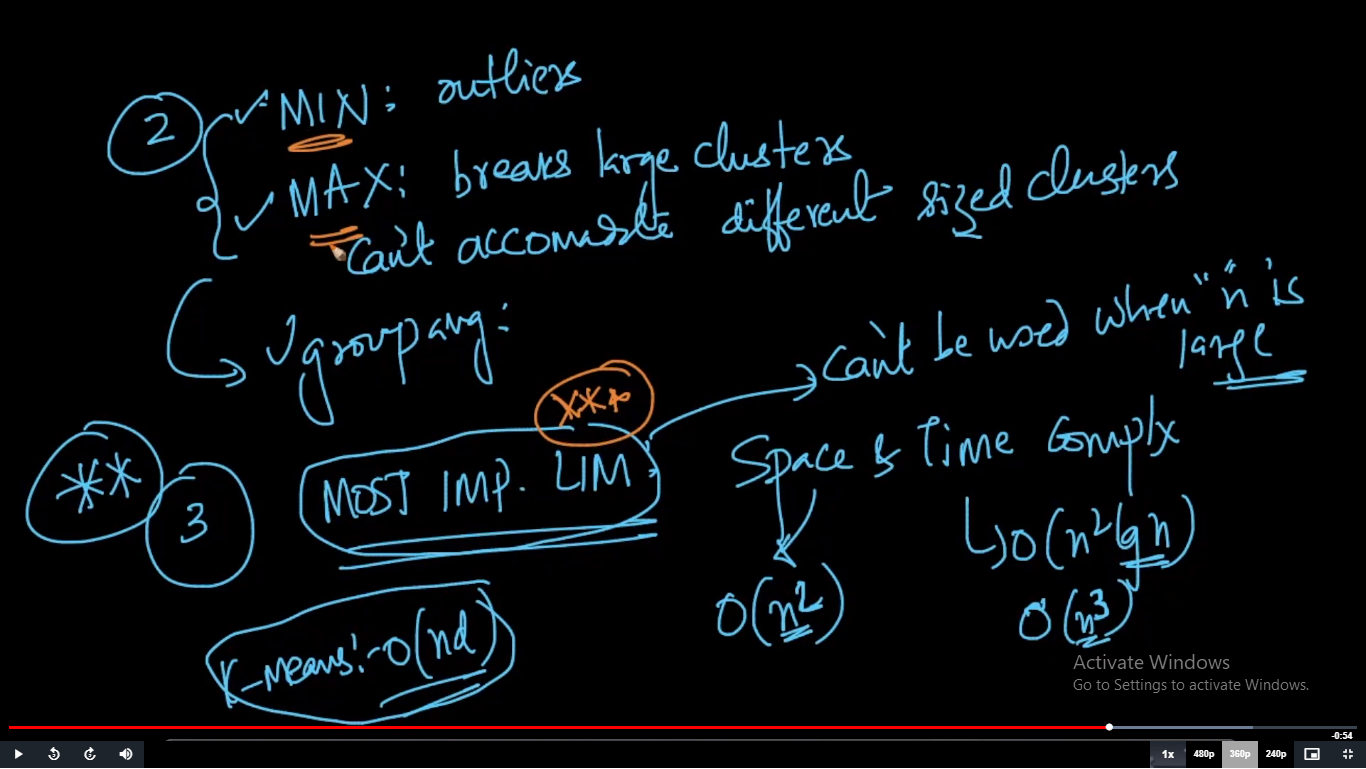 2 MIN: outliers
MAX: breaks large clusters
Can't accomodate different sized clusters
groupavg:
Can't be used when "n" is
large
***
** 3 MOST IMP. LIM
Space & Time Complx
O(n²) O(n² lg n)
O(n³)
K-means:- O(nd)
Activate Windows
Go to Settings to activate Windows.
-0:54
5 5 1x 480p 360p 240p